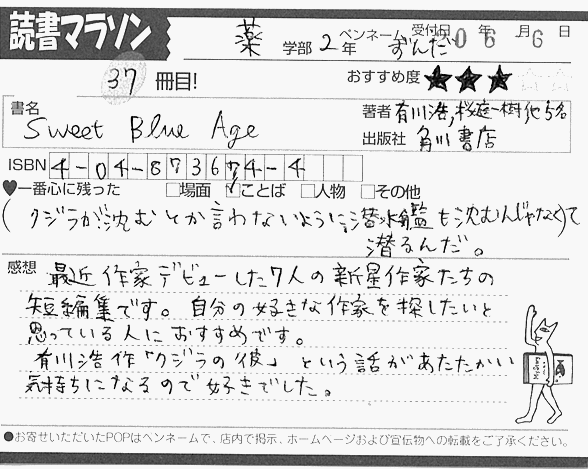 読書マラソン
薬 学部 2年 ペンネーム ずんだ 受付日 06年 6月 6日
37 冊目! おすすめ度 ★★★☆☆
書名 Sweet Blue Age
著者 有川浩,桜庭一樹 他5名
出版社 角川書店
ISBN 4-04-873674-4
♥一番心に残った □場面 ☑ことば □人物 □その他
(クジラが沈むとか言わないように潜水艦も沈むんじゃなく)て
潜るんだ。
感想 最近作家デビューした7人の新星作家たちの
短編集です。自分の好きな作家を探したいと
思っている人におすすめです。
有川浩作「クジラの彼」という話があたたかい
気持ちになるので好きでした。
●お寄せいただいたPOPはペンネームで、店内で掲示、ホームページおよび宣伝物への転載をご了承ください。